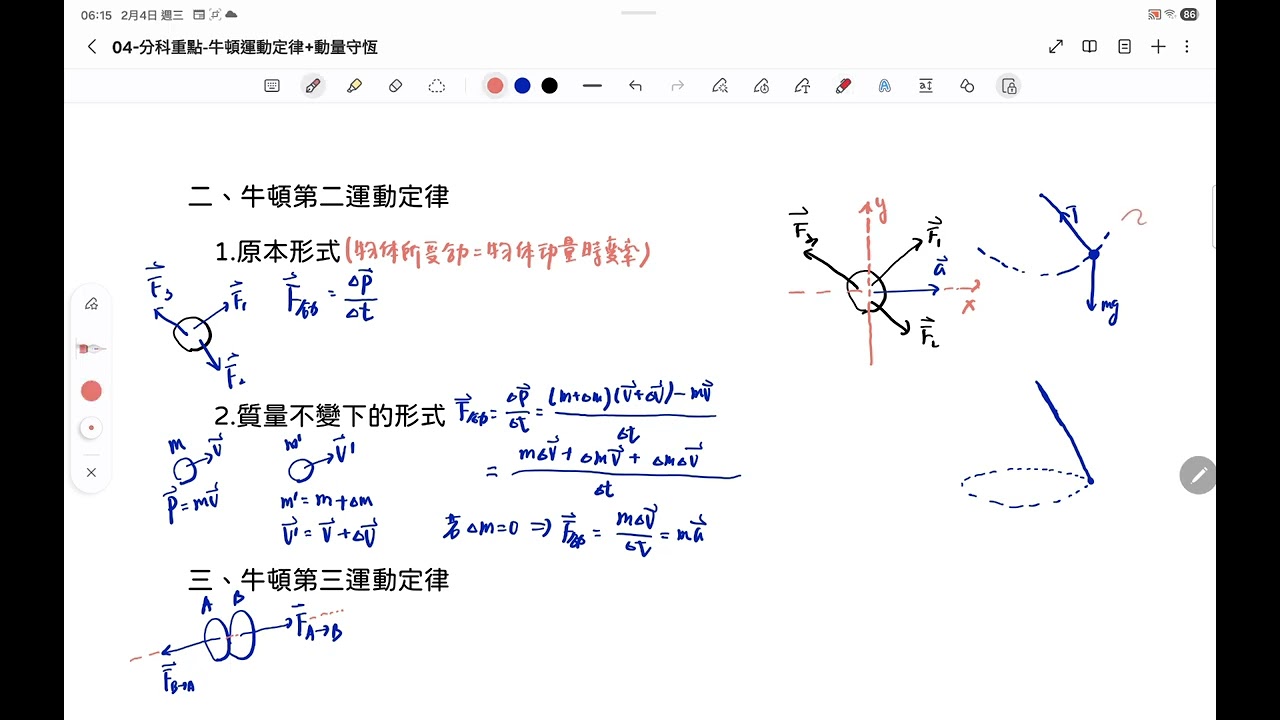 06:15 2月4日 週三
86
04-分科重點-牛頓運動定律+動量守恆
二、牛頓第二運動定律
1.原本形式(物体所受合力=物体动量時變率)
F⃗合力 = Δp⃗/Δt
F⃗₃
F⃗₁
F⃗₂
2.質量不變下的形式
F⃗合力 = Δp⃗/Δt = ((m+Δm)(v⃗+Δv⃗) - mv⃗)/Δt
= (mΔv⃗ + Δmv⃗ + ΔmΔv⃗)/Δt
m v⃗
p⃗=mv⃗
m' v⃗'
m' = m + Δm
v⃗' = v⃗ + Δv⃗
若 Δm=0 ⇒ F⃗合力 = mΔv⃗/Δt = ma⃗
三、牛頓第三運動定律
A B
F⃗A→B
F⃗B→A
y
F⃗₃
F⃗₁
a⃗
x
F⃗₂
T
mg